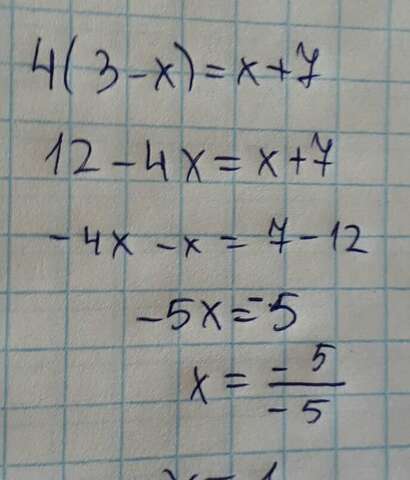 4(3-x)=x+7
12-4x=x+7
-4x-x=7-12
-5x=-5
x=-5/-5